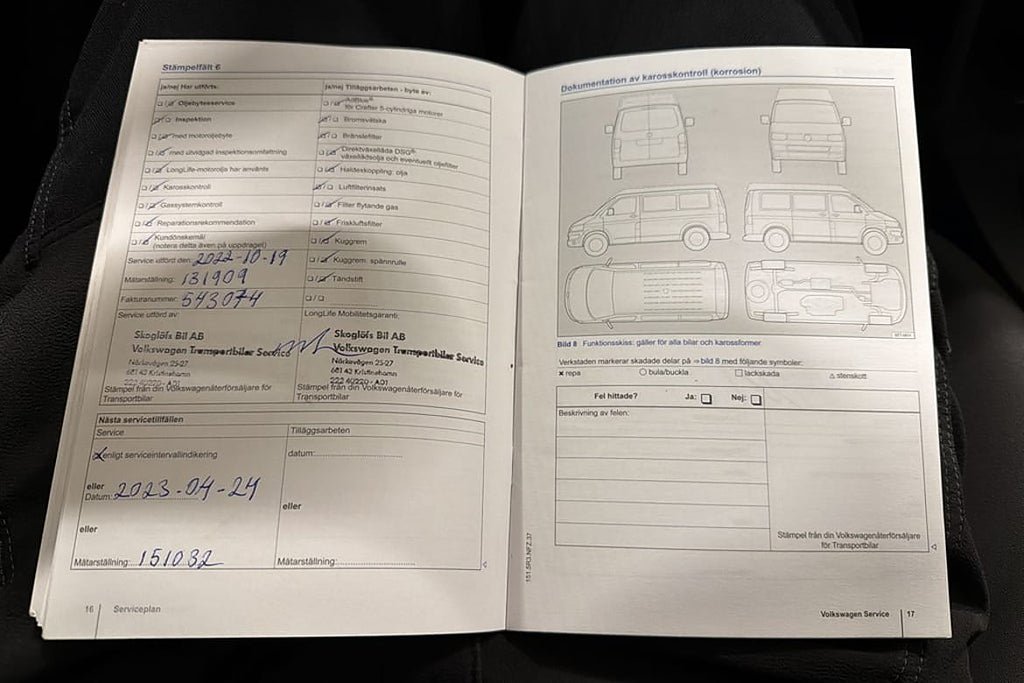 Stämpelfält 6
ja/nej Har utförts:
Oljebytesservice
Inspektion
med motoroljebyte
med utvidgad inspektionsomfattning
LongLife-motorolja har använts
Karosskontroll
Gassystemkontroll
Reparationsrekommendation
Kundönskemål
(notera detta även på uppdraget)
Service utförd den: 2022-10-19
Mätarställning: 131909
Fakturanummer: 543074
Service utförd av:
Skoglöfs Bil AB
Volkswagen Transportbilar Service
Näckevägen 25-27
681 42 Kristinehamn
222 40220 - A01
Stämpel från din Volkswagenåterförsäljare för
Transportbilar
ja/nej Tilläggsarbeten - byte av:
AdBlue®
för Crafter 5-cylindriga motorer
Bromsvätska
Bränslefilter
Direktväxellåda DSG®:
växellådsolja och eventuellt oljefilter
Haldexkoppling: olja
Luftfilterinsats
Filter flytande gas
Friskluftsfilter
Kuggrem
Kuggrem: spännrulle
Tändstift
LongLife Mobilitetsgaranti:
Skoglöfs Bil AB
Volkswagen Transportbilar Service
Näckevägen 25-27
681 42 Kristinehamn
222 40220 - A01
Stämpel från din Volkswagenåterförsäljare för
Transportbilar
Nästa servicetillfällen
Service
enligt serviceintervallindikering
eller
Datum: 2023-04-24
eller
Mätarställning: 151032
Tilläggsarbeten
datum:
eller
Mätarställning:
16 Serviceplan
Dokumentation av karosskontroll (korrosion)
Bild 8 Funktionsskiss: gäller för alla bilar och karossformer
Verkstaden markerar skadade delar på ⇒ bild 8 med följande symboler:
× repa ○ bula/buckla □ lackskada △ stenskott
Fel hittade? Ja: Nej:
Beskrivning av felen:
Stämpel från din Volkswagenåterförsäljare
för Transportbilar
151.5R3.NFZ.37
Volkswagen Service 17